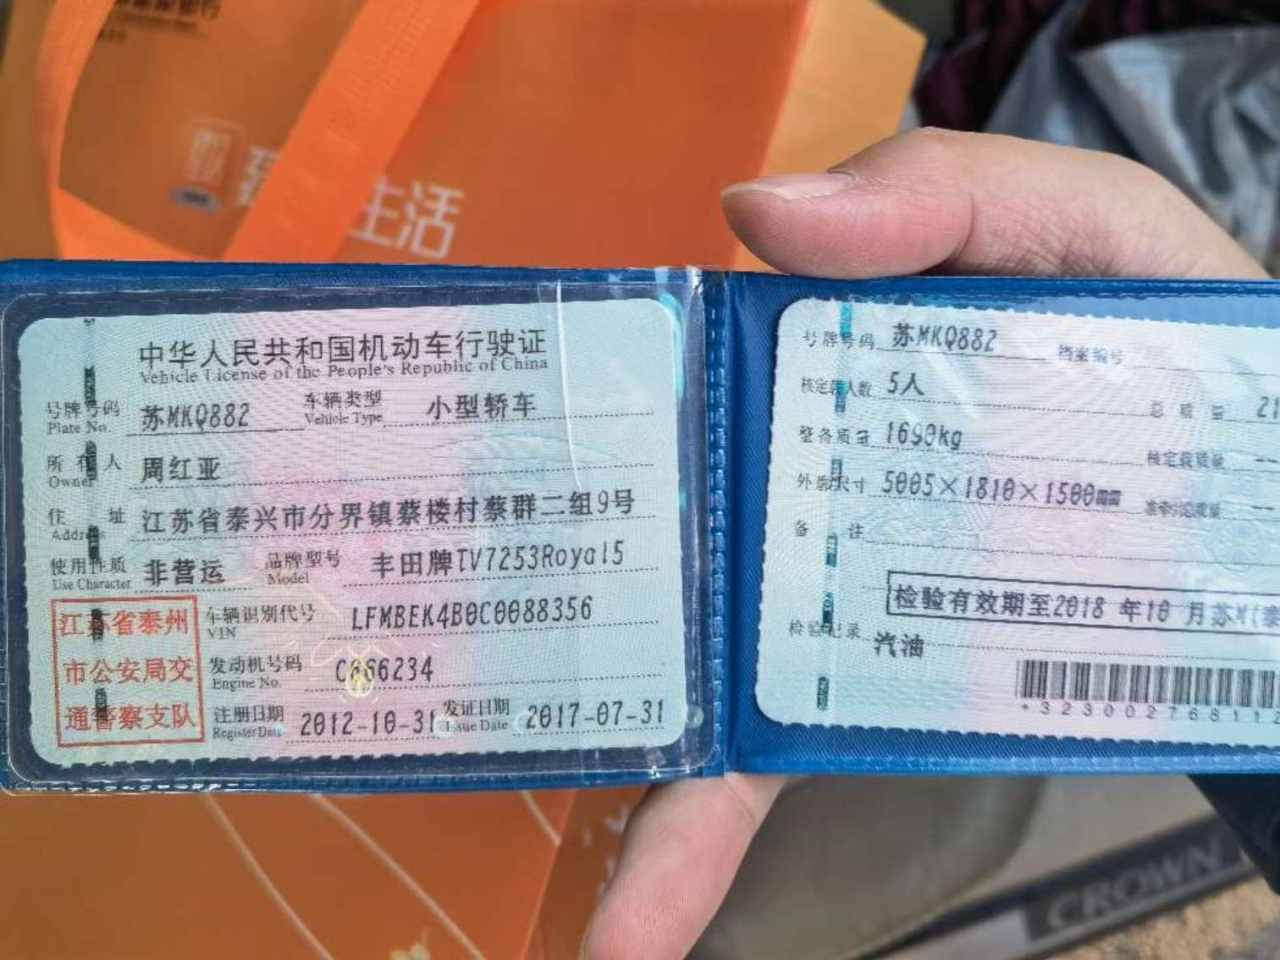 生活
中华人民共和国机动车行驶证
Vehicle License of the People's Republic of China
号牌号码 苏MKQ882 车辆类型 小型轿车
Plate No. Vehicle Type
所有人 周红亚
Owner
住址 江苏省泰兴市分界镇蔡楼村蔡群二组9号
Address
使用性质 非营运 品牌型号 丰田牌TV7253Royal5
Use Character Model
江苏省泰州
市公安局交
通警察支队
车辆识别代号 LFMBEK4B0C0088356
VIN
发动机号码 C666234
Engine No.
注册日期 2012-10-31 发证日期 2017-07-31
Register Date Issue Date
号牌号码 苏MKQ882 档案编号
核定载人数 5人 总质量 21
整备质量 1690kg 核定载质量 --
外廓尺寸 5005×1810×1500mm 准牵引总质量 --
备注
检验有效期至2018年10月苏M(泰
检验记录 汽油
*323002768112
CROWN